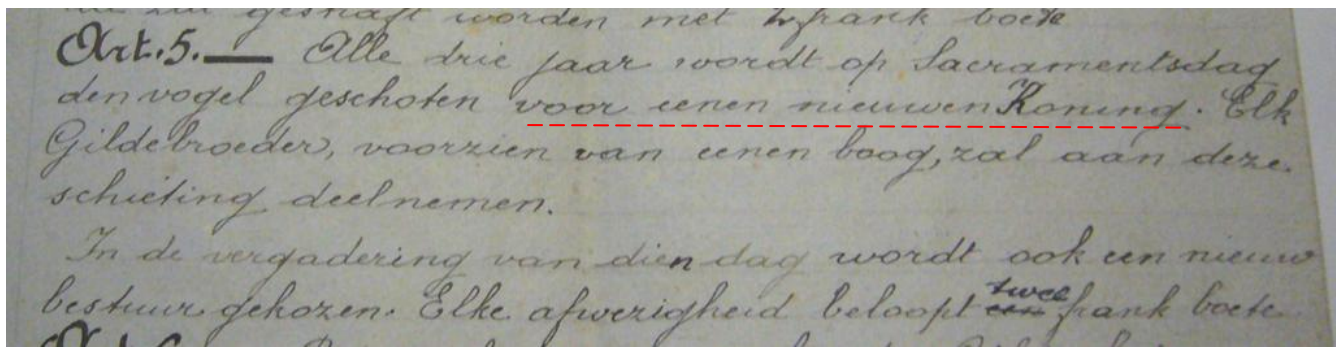 zal gestraft worden met frank boete
Art. 5. — Alle drie jaar wordt op Sacramentsdag
den vogel geschoten voor eenen nieuwen Koning. Elk
Gildebroeder, voorzien van eenen boog, zal aan deze
schieting deelnemen.
In de vergadering van dien dag wordt ook een nieuw
bestuur gekozen. Elke afwezigheid beloopt twee frank boete